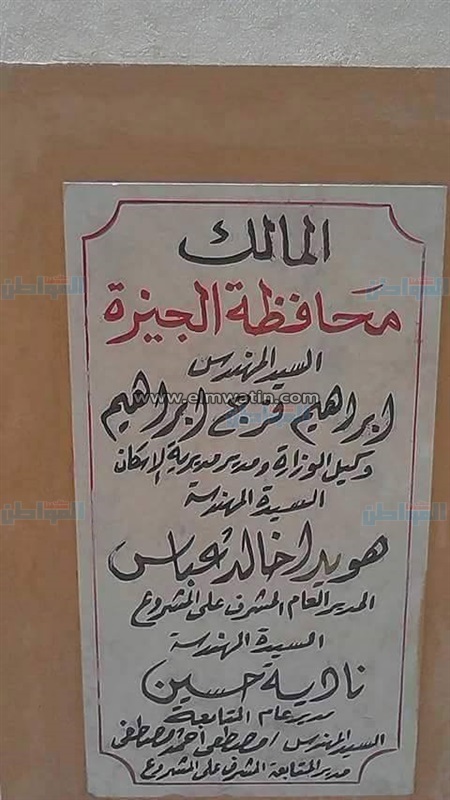 المالك
محافظة الجيزة
السيد المهندس
ابراهيم فرج ابراهيم
وكيل الوزارة ومدير مديرية الإسكان
السيدة المهندسة
هويدا خالد عباس
المدير العام المشرف على المشروع
السيدة المهندسة
نادية حسين
مدير عام المتابعة
السيد المهندس / مصطفى احمد مصطفى
مدير المتابعة المشرف على المشروع
www.elmwatin.com
المواطن
المواطن
المواطن
المواطن